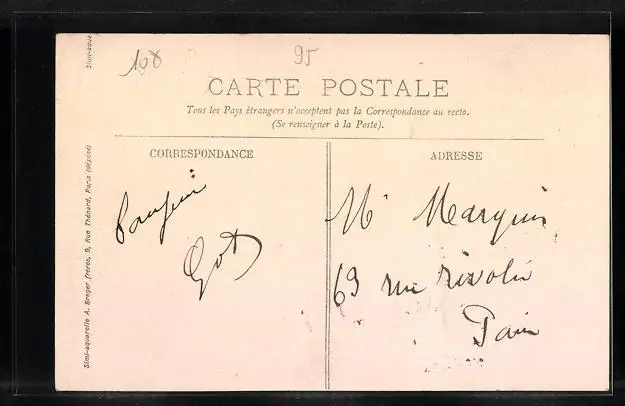 108
95
CARTE POSTALE
Tous les Pays étrangers n'acceptent pas la Correspondance au recto.
(Se renseigner à la Poste).
CORRESPONDANCE
ADRESSE
Simi-aqua
Simi-aquarelle A. Breger frères, 9, Rue Thénard, Paris (déposé)
Bonjour
Got
Mr Marquis
69 rue rivoli
Paris